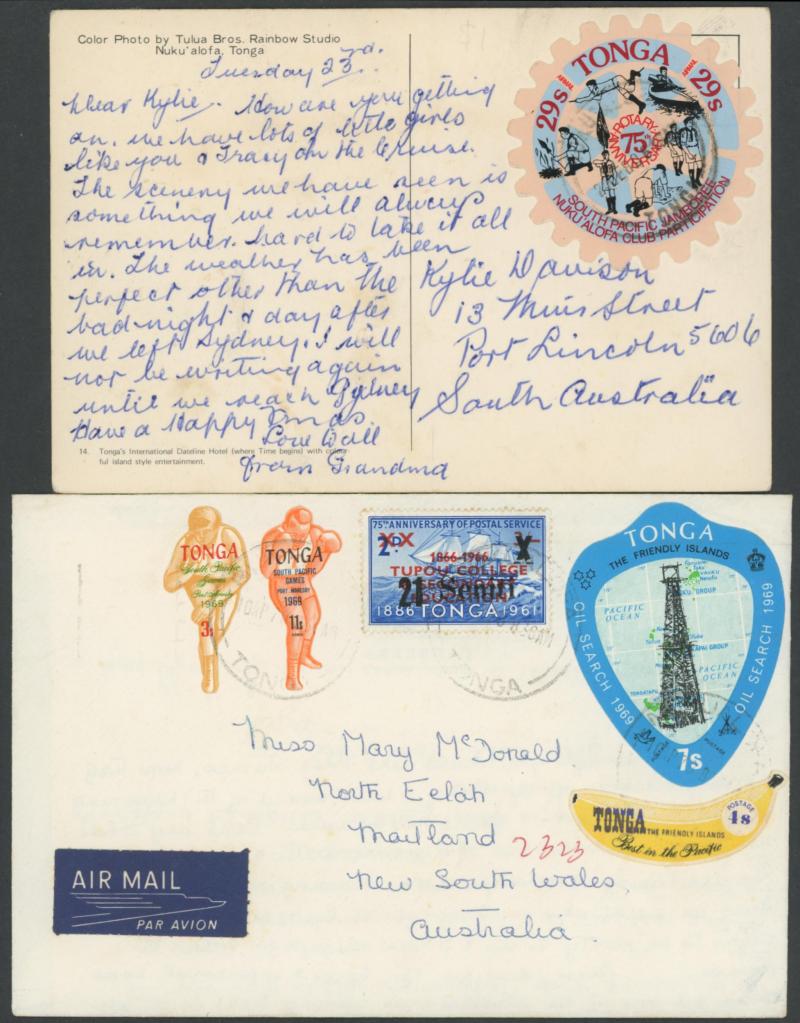 Color Photo by Tulua Bros. Rainbow Studio
Nuku'alofa, Tonga
Tuesday 23rd.
Dear Kylie. How are you getting
on. we have lots of little girls
like you & Tracy on the Cruise.
The scenery we have seen is
something we will always
remember. hard to take it all
in. The weather has been
perfect other than the
bad night & day after
we left Sydney. I will
not be writing again
until we reach Sydney
Have a Happy Xmas
Love Wall
from Grandma
14. Tonga's International Dateline Hotel (where Time begins) with colour-
ful island style entertainment.
TONGA
AIRMAIL
AIRMAIL
29s
29s
ROTARY
75th
ANNIVERSARY
SOUTH PACIFIC JAMBOREE
NUKU'ALOFA CLUB PARTICIPATION
Kylie Davison
13 Muir Street
Port Lincoln 5606
South Australia
TONGA
South Pacific
Games
Port Moresby
1969
3s
TONGA
SOUTH PACIFIC
GAMES
PORT MORESBY
1969
11s
TONGA
75TH ANNIVERSARY OF POSTAL SERVICE
2D
1866-1966
TUPOU COLLEGE
SECONDARY
21 Seniti
1886 TONGA 1961
TONGA
TONGA
THE FRIENDLY ISLANDS
OIL SEARCH 1969
OIL SEARCH 1969
PACIFIC
OCEAN
PACIFIC
OCEAN
TONGATAPU
POSTAGE
7s
TONGA THE FRIENDLY ISLANDS
Best in the Pacific
POSTAGE
4s
Miss Mary McDonald
North Eelah
Maitland 2323
New South Wales,
Australia.
AIR MAIL
PAR AVION